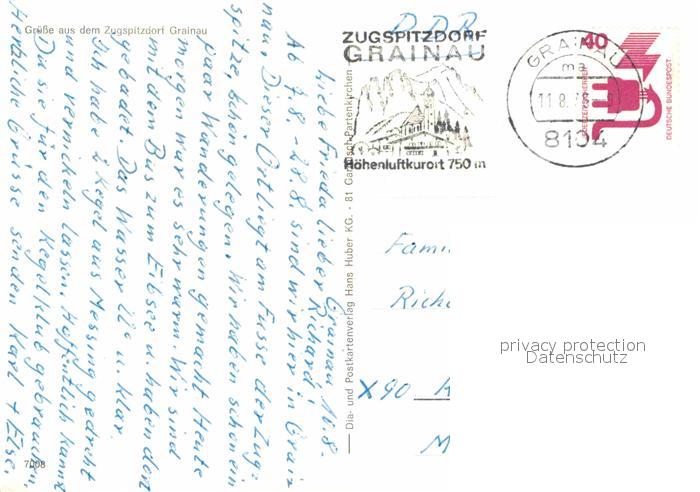 Grüße aus dem Zugspitzdorf Grainau
Grainau 10.8.
Liebe Frida, lieber Richard!
Ab 7.8 - 28.8 sind wir hier in Grai-
nau. Dieser Ort liegt am Fusse der Zug-
spitze. Wir haben schon ein
paar Wanderungen gemacht. Heute
morgen war es sehr warm. Wir sind
mit dem Bus zum Eibsee u. haben den
gebadet. Das Wasser 22° u. klar.
Ich habe 2 Kegel aus Messing gedreht
und vernickeln lassen. Hoffentlich kannst
Du sie für den Kegelklub gebrauchen.
Herzlich Grüsse senden Karl + Else.
7008
Dia- und Postkartenverlag Hans Huber KG. - 81 Garmisch-Partenkirchen
DDR
ZUGSPITZDORF
GRAINAU
Höhenluftkurort 750 m
GRAINAU
ma
11.8.
8104
40
DEUTSCHE BUNDESPOST
Fami
Riche
X90
M
privacy protection
Datenschutz